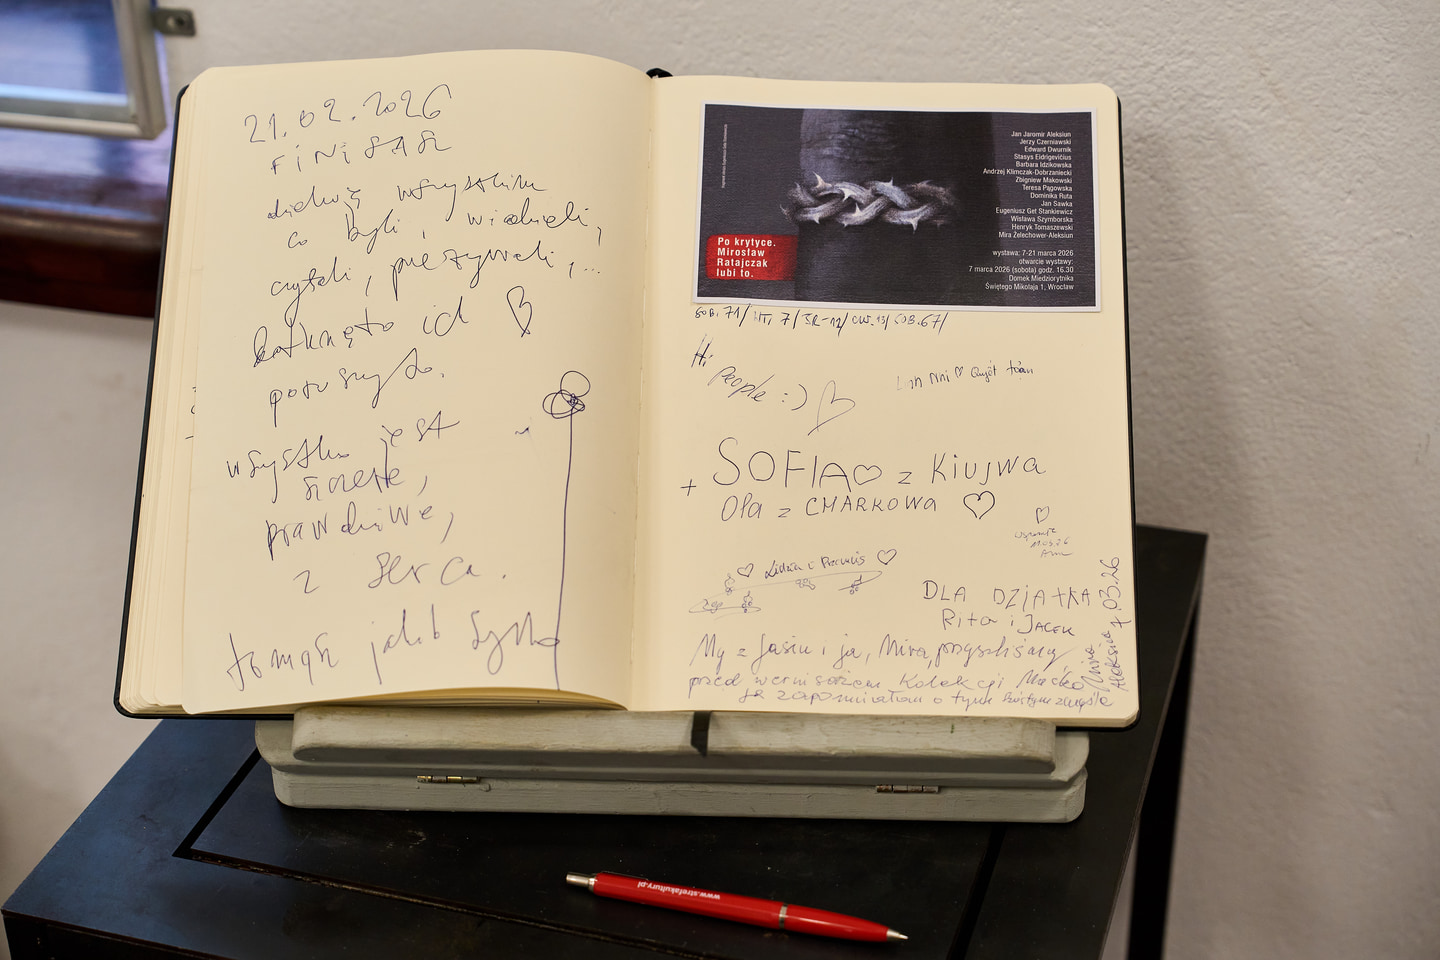 21.02.2026
FINISAŻ
dziękuję wszystkim
co byli, widzieli,
czytali, przeżywali, ...
dotknęło ich
poruszyło.
wszystko jest
szczere,
prawdziwe,
z serca.
tomasz jakub sysło
Jan Jaromir Aleksiun
Jerzy Czerniawski
Edward Dwurnik
Stasys Eidrigevičius
Barbara Idzikowska
Andrzej Klimczak-Dobrzaniecki
Zbigniew Makowski
Teresa Pągowska
Dominika Ruta
Jan Sawka
Eugeniusz Get Stankiewicz
Wisława Szymborska
Henryk Tomaszewski
Mira Żelechower-Aleksiun
wystawa: 7-21 marca 2026
otwarcie wystawy:
7 marca 2026 (sobota) godz. 16.30
Domek Miedziorytnika
Świętego Mikołaja 1, Wrocław
Po krytyce.
Mirosław
Ratajczak
lubi to.
Hi
People :)
SOFIA z Kiujwa
+ Ola z CHARKOWA
DLA DZIADKA
Rita i JACEK
My z Jasiu i ja, Mira, przyszliśmy
przed wernisażem Kolekcji Mirka
Ja zapomniałam o tym
Mira Aleksiun 7.03.26
www.strefakultury.pl